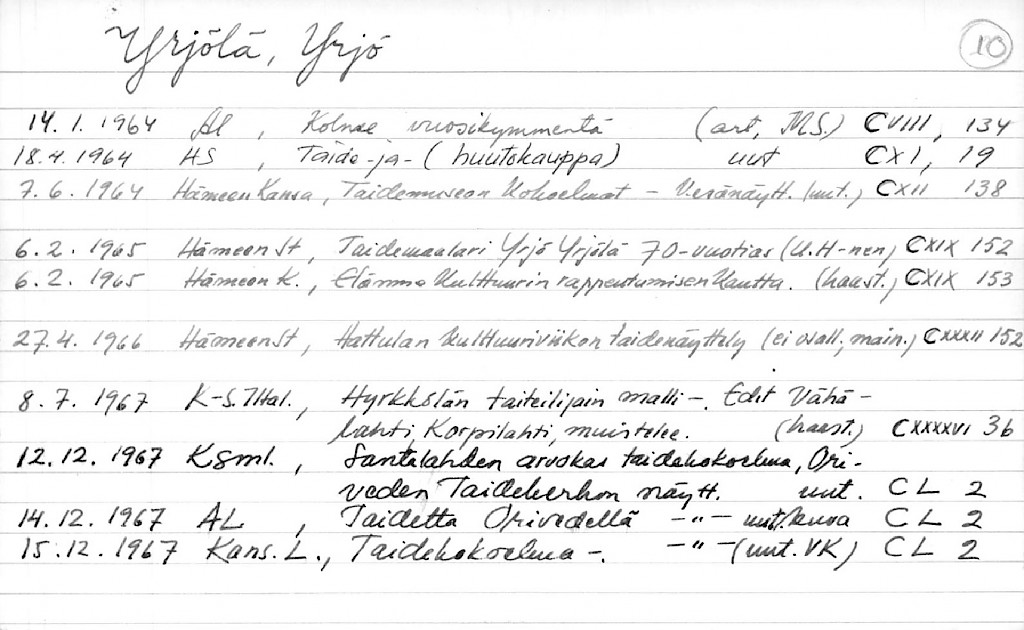 Yrjölä, Yrjö 10
14.1.1964 AL, Kolme vuosikymmentä (art, M.S.) CVIII, 134
18.4.1964 HS, Taide-ja-(huutokauppa) uut CXI, 19
7.6.1964 Hämeen Kansa, Taidemuseon Kokoelmat - Kesänäytt. (uut.) CXII 138
6.2.1965 Hämeen St, Taidemaalari Yrjö Yrjölä 70-vuotias (U.H-nen) CXIX 152
6.2.1965 Hämeen K., Elämme kulttuurin rappeutumisen kautta. (haast.) CXIX 153
27.4.1966 Hämeen St, Hattulan kulttuuriviikon taidenäyttely (ei osall, main.) CXXXII 152
8.7.1967 K-S. Ital., Hyrkkölän taiteilijain malli -. Edit Vähä-
lahti, Korpilahti, muistelee. (haast.) CXXXXVI 36
12.12.1967 Ksml., Santalahden arvokas taidekokoelma, Ori-
veden Taidekerhon näytt. uut. CL 2
14.12.1967 AL, Taidetta Orivedellä -"- uut/kuva CL 2
15.12.1967 Kans. L., Taidekokoelma -. -"- (uut. VK) CL 2